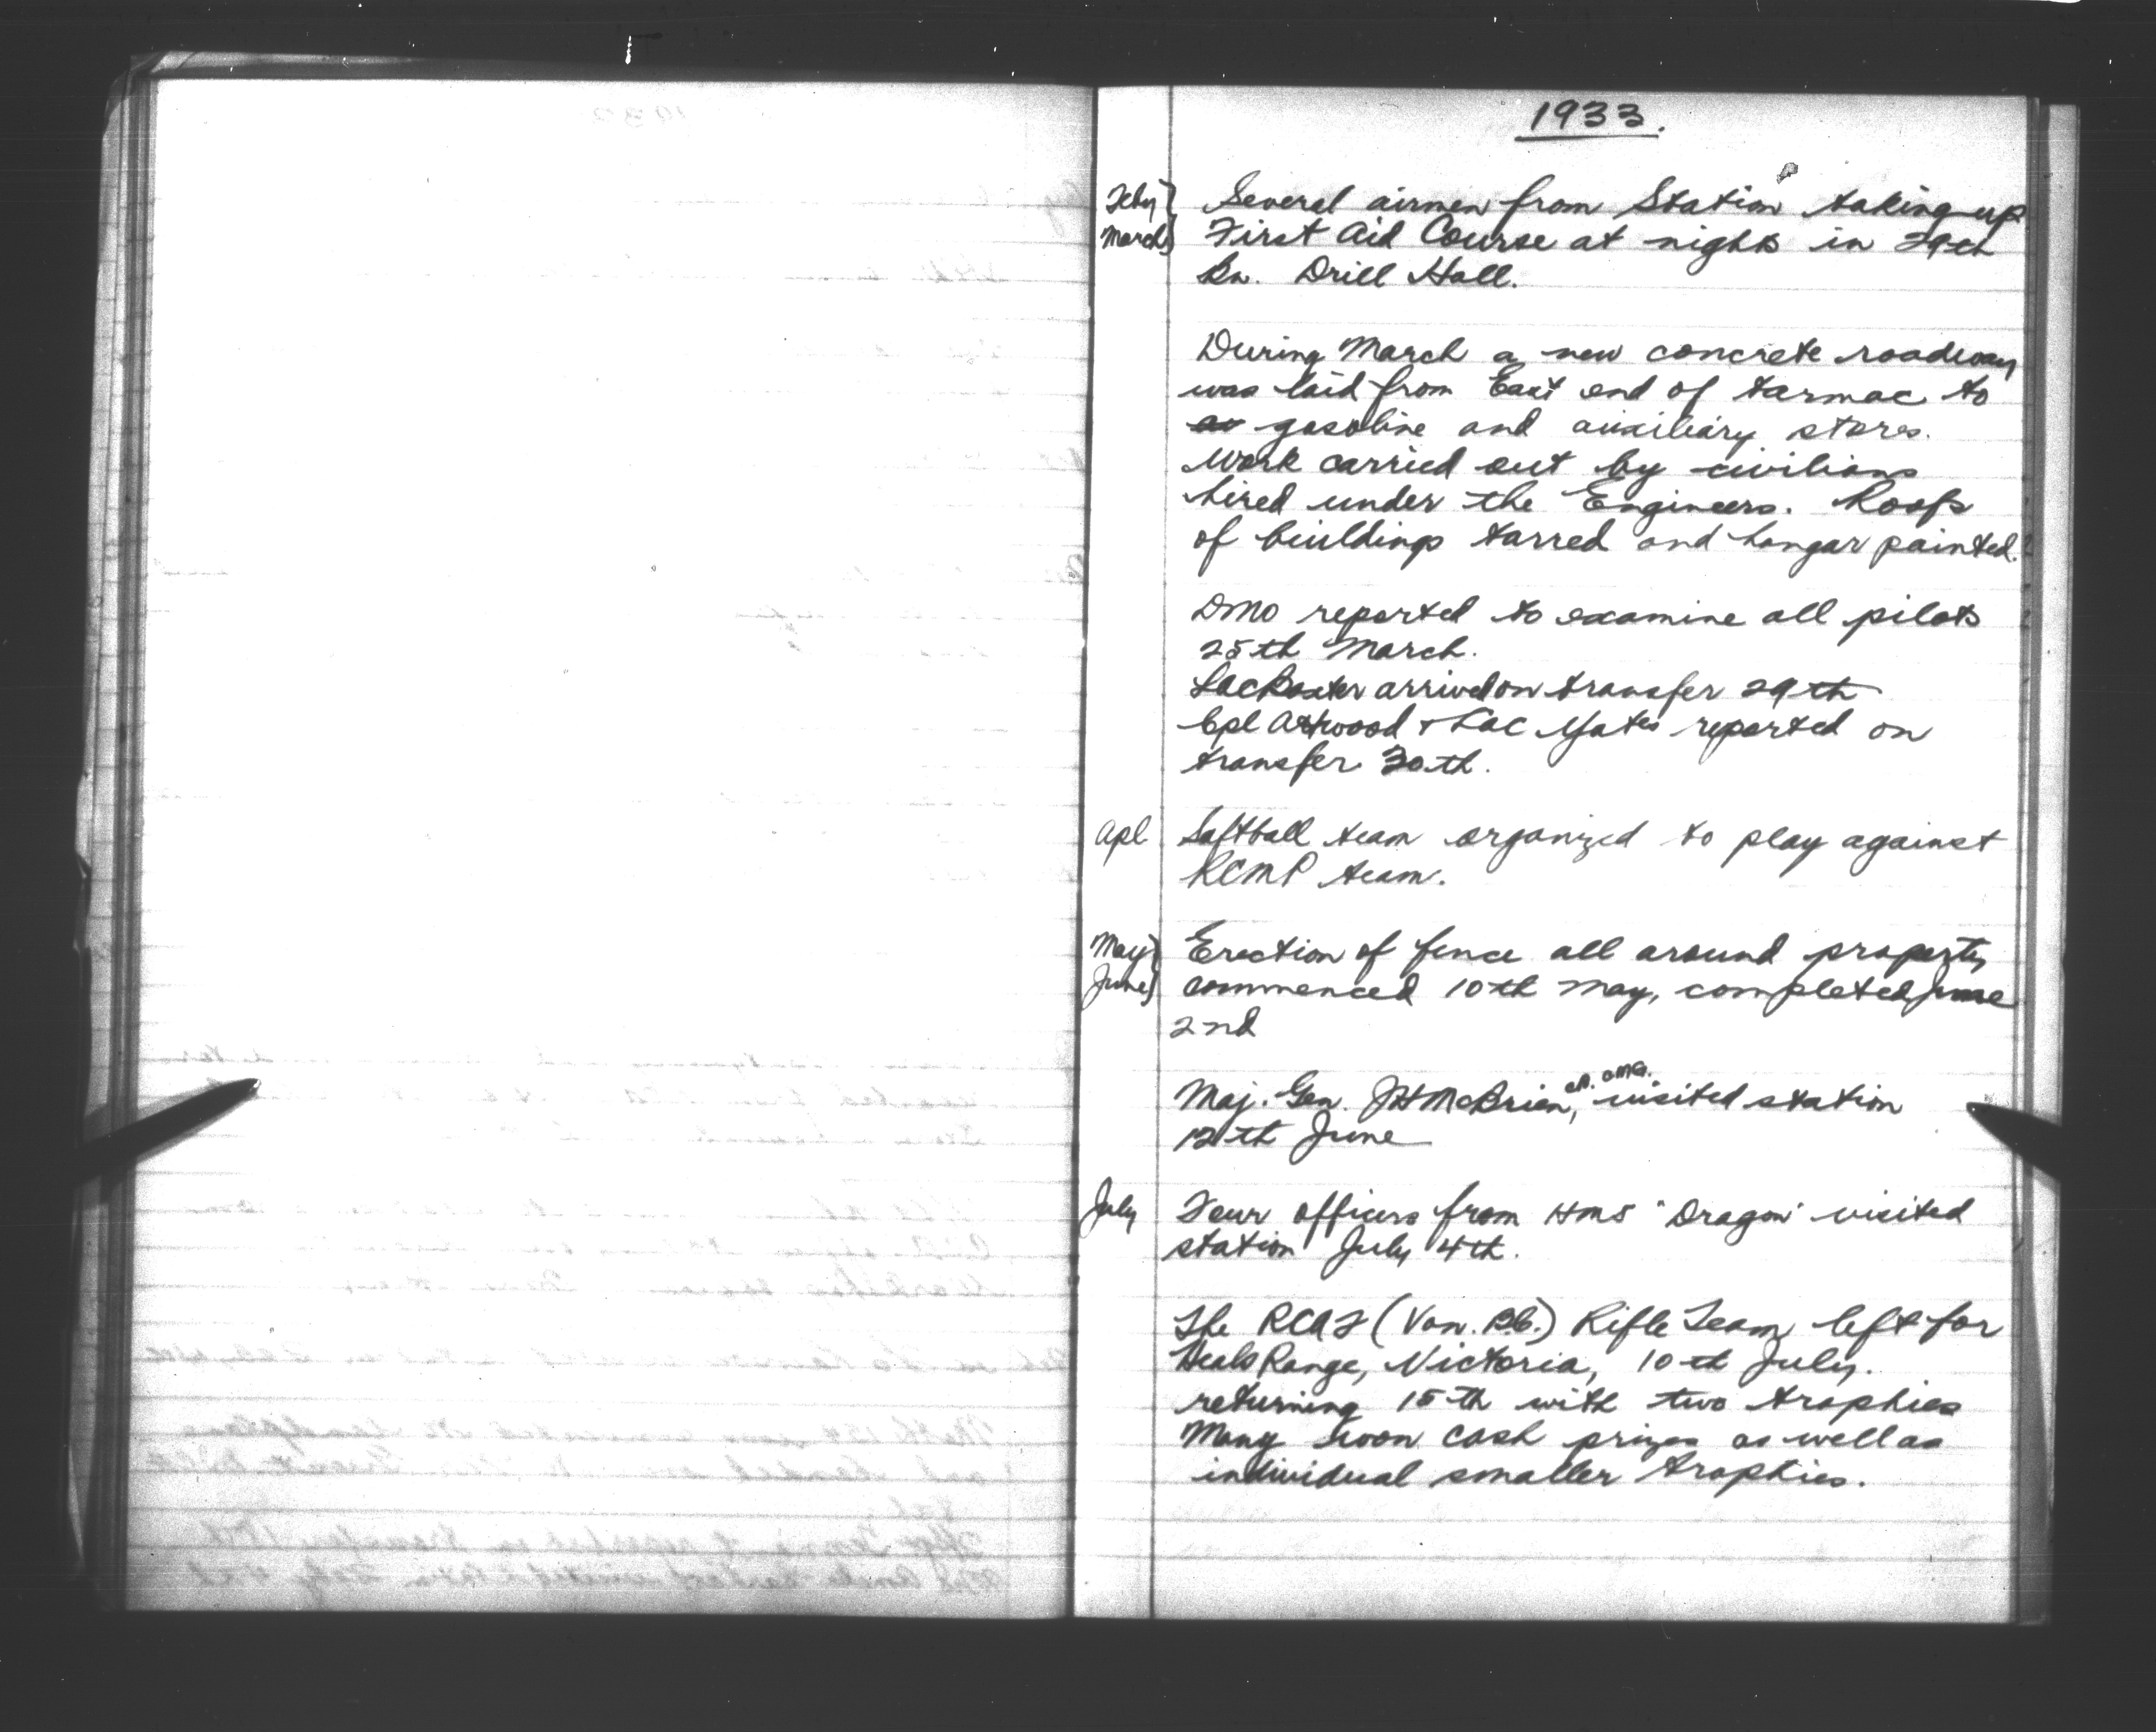 1933.
Feby } Several airmen from Station taking up
March } First Aid Course at nights in 29th
Bn. Drill Hall.
During March a new concrete roadway
was laid from East end of tarmac to
gasoline and auxiliary stores.
Work carried out by civilians
hired under the Engineers. Roofs
of buildings tarred and hangar painted.
DMO reported to examine all pilots
25th March.
Lac Baxter arrived on transfer 29th
Cpl Attwood & Lac Yates reported on
transfer 30th.
Apl Softball team organized to play against
RCMP team.
May } Erection of fence all around property
June } commenced 10th May, completed June
2nd
Maj. Gen. JH McBrien, CB. CMG. visited station
12th June
July Four officers from HMS "Dragon" visited
station July 4th.
The RCAF (Van. B.C.) Rifle Team left for
Heals Range, Victoria, 10th July.
returning 15th with two trophies
Many won cash prizes as well as
individual smaller trophies.